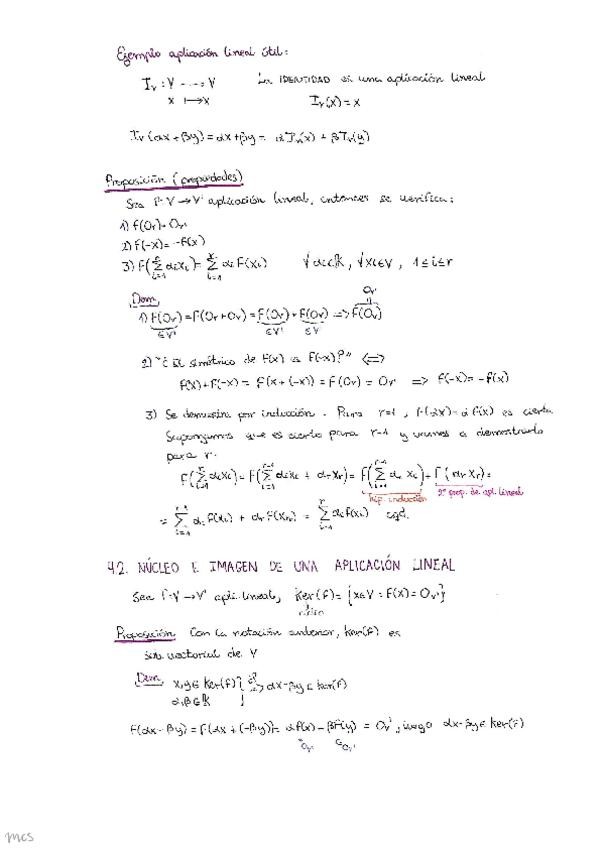 Ejemplo aplicación lineal útil:
Iv : V ---→ V    La IDENTIDAD es una aplicación lineal
x ↦ x    Iv(x) = x
Iv(αx + βy) = αx + βy = αIv(x) + βIv(y)
Proposición (propiedades)
Sea f: V → V' aplicación lineal, entonces se verifica:
1) f(0v) = 0v'
2) f(-x) = -f(x)
3) f(∑ αixi) = ∑ αi f(xi)    ∀αi∈K, ∀xi∈V, 1≤i≤r
Dem
1) f(0v) = f(0v + 0v) = f(0v) + f(0v) => f(0v)
0v'
∈V'    ∈V'    ∈V
2) "¿El simétrico de f(x) es f(-x)?" <=>
f(x) + f(-x) = f(x + (-x)) = f(0v) = 0v' => f(-x) = -f(x)
3) Se demuestra por inducción. Para r=1, f(αx) = αf(x) es cierta
Supongamos que es cierto para r-1 y vamos a demostrarlo
para r.
f(∑ αixi) = f(∑ αixi + αrxr) = f(∑ αixi) + f(αrxr) =
hip. inducción    2ª prop. de apl. lineal
= ∑ αi f(xi) + αr f(xr) = ∑ αi f(xi)    cqd.
4.2. NÚCLEO E IMAGEN DE UNA APLICACIÓN LINEAL
Sea f: V → V' apli. lineal, ker(f) = {x∈V : f(x) = 0v'}
Proposición Con la notación anterior, ker(f) es
sub. vectorial de V
Dem x,y ∈ ker(f) } ¿? => αx - βy ∈ ker(f)
α,β ∈ K
f(αx - βy) = f(αx + (-βy)) = αf(x) - βf(y) = 0v', luego αx - βy ∈ ker(f)
0v'    0v'
mcs